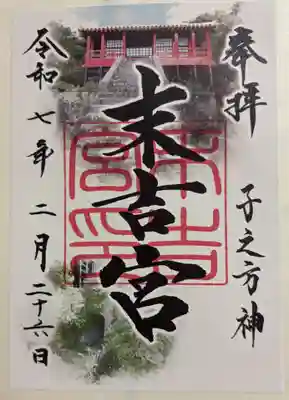 奉拝
子之方神
末吉宮
末吉宮印
令和七年二月二十六日